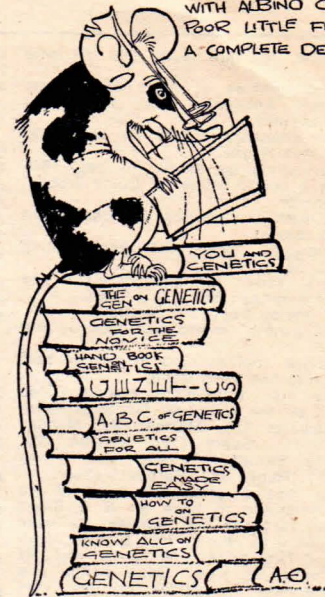 WITH ALBINO C
POOR LITTLE F
A COMPLETE DE
YOU AND
GENETICS
THE
GEN ON GENETICT
GENETICS
FOR THE
NOVICE
HAND BOOK
ON
GENETICS
GENETICS
A.B.C. OF GENETICS
GENETICS
FOR ALL
GENETICS
MADE
EASY
HOW TO
ON
GENETICS
KNOW ALL ON
GENETICS
GENETICS
A.O.